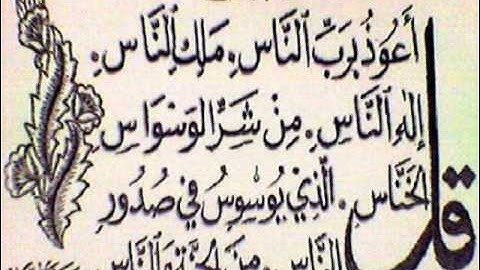 قل أَعُوذُ بِرَبِّ ٱلنَّاسِ. مَلِكِ ٱلنَّاسِ.
إِلٰهِ ٱلنَّاسِ. مِنْ شَرِّ الْوَسْوَاسِ
الْخَنَّاسِ. الَّذِي يُوَسْوِسُ فِي صُدُورِ
النَّاسِ. مِنَ الْجِنَّةِ وَالنَّاسِ